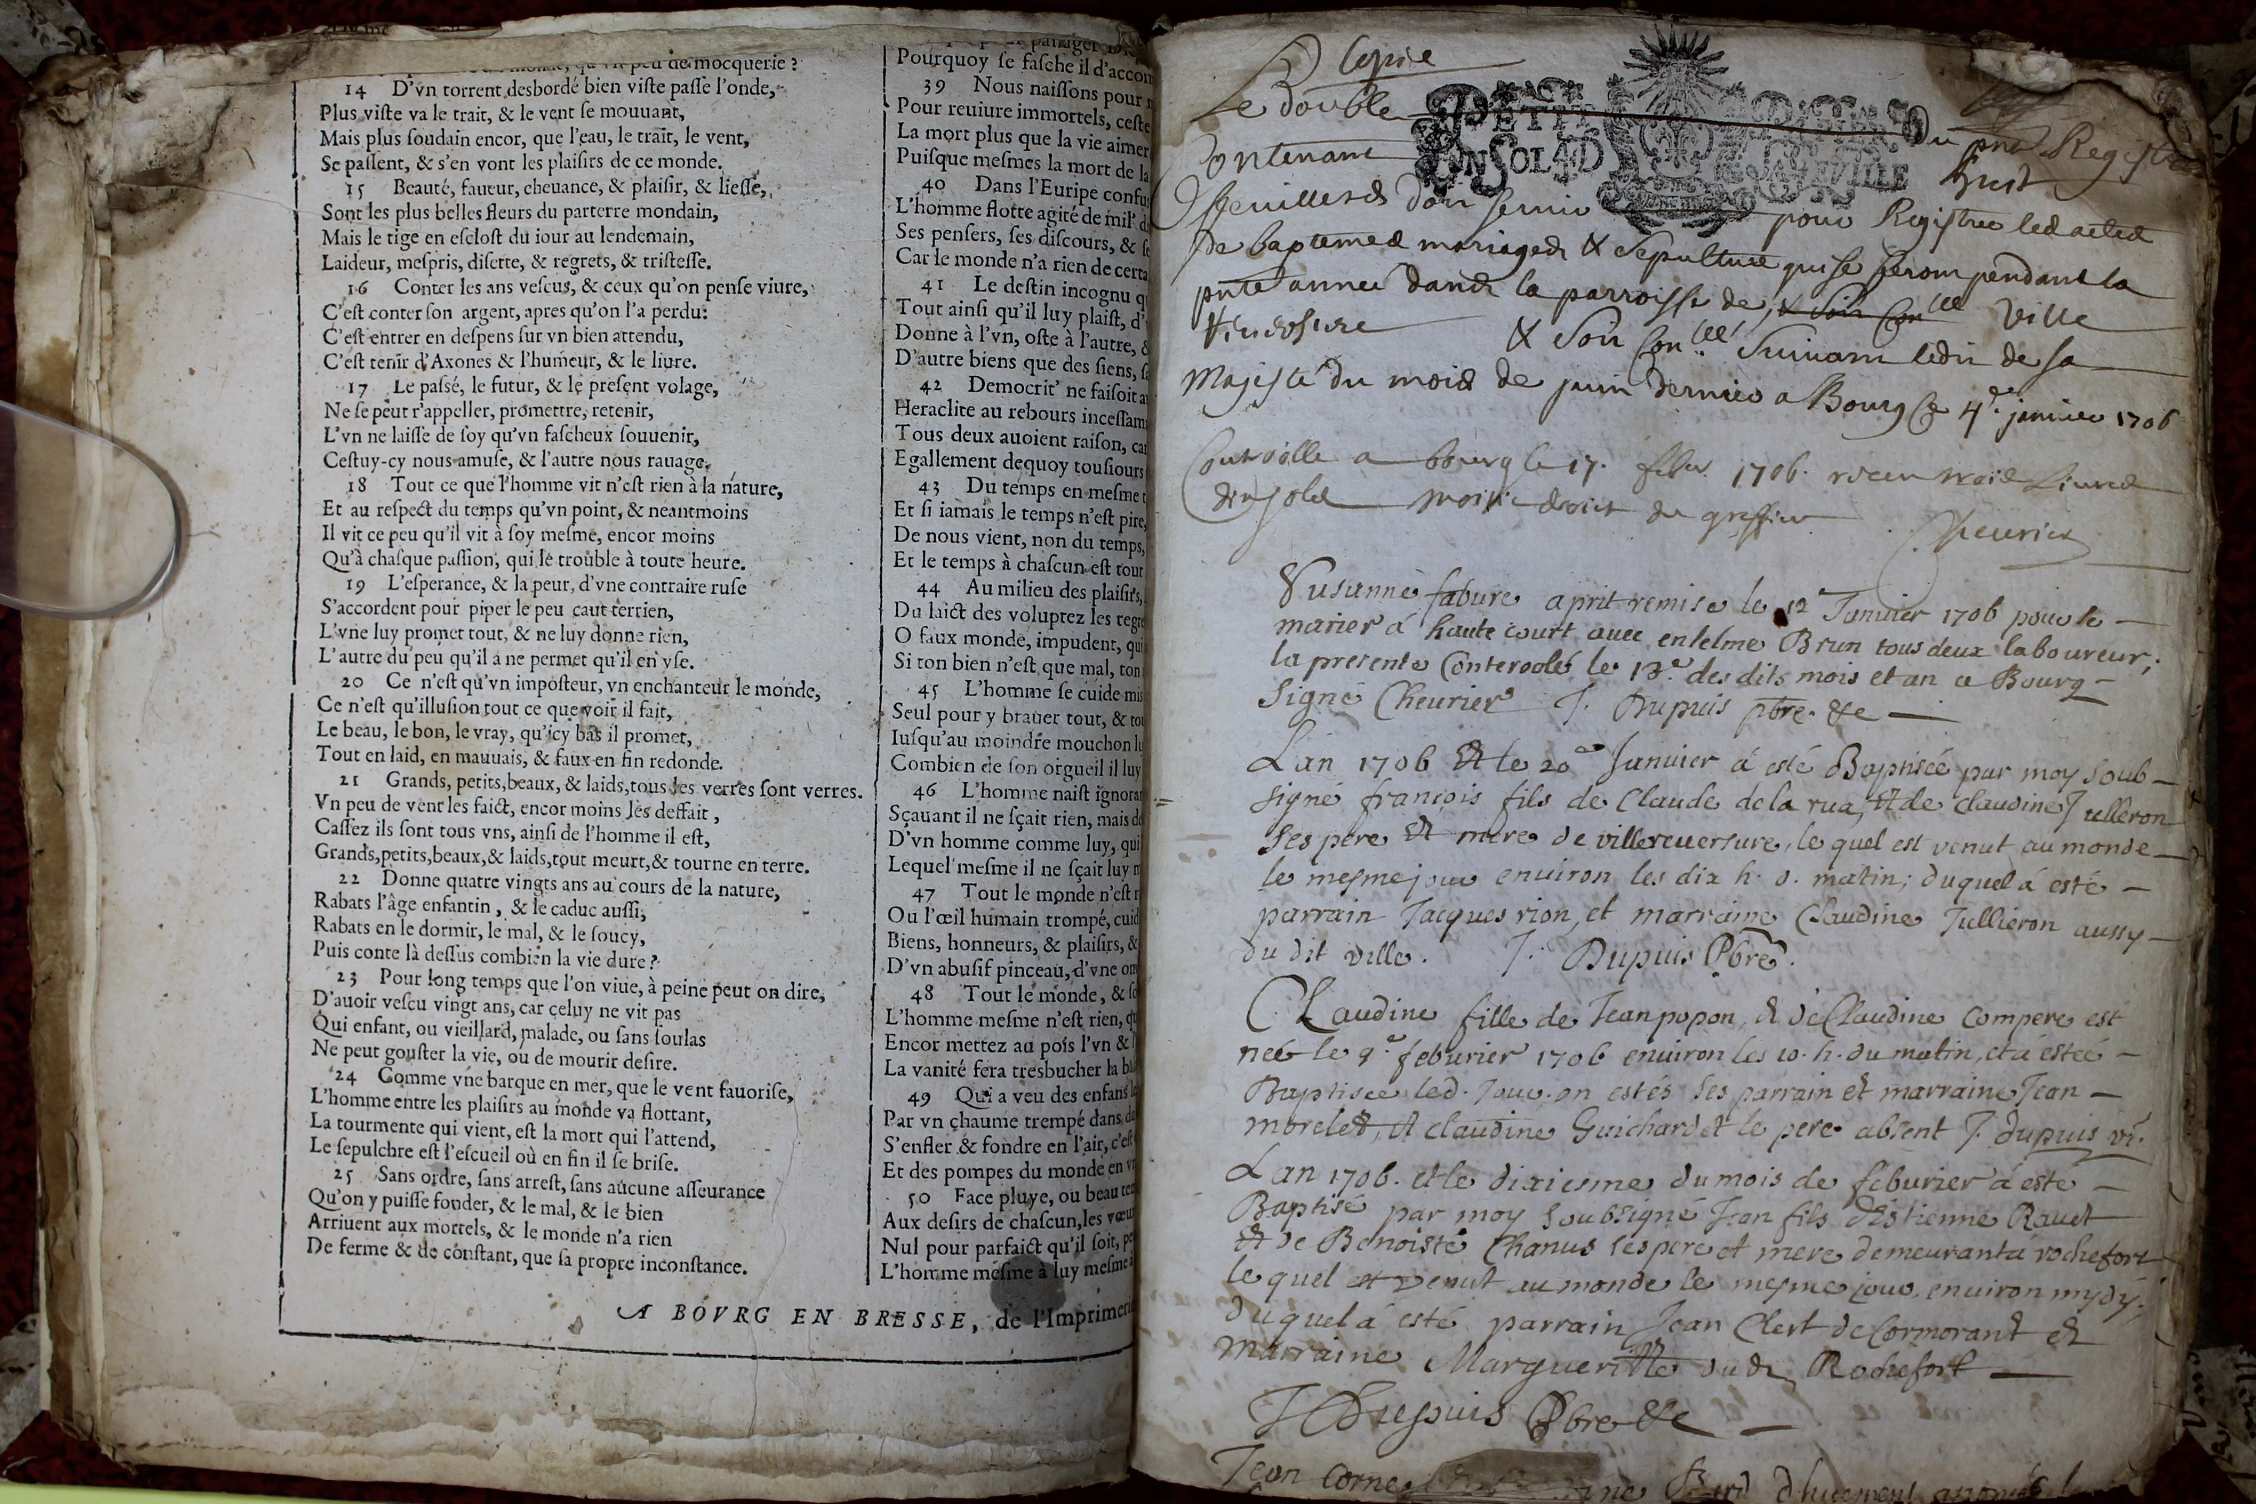 peu de mocquerie?
14 D'vn torrent desbordé bien viste passe l'onde,
Plus viste va le trait, & le vent se mouuant,
Mais plus soudain encor, que l'eau, le trait, le vent,
Se passent, & s'en vont les plaisirs de ce monde.
15 Beauté, faueur, cheuance, & plaisir, & liesse,
Sont les plus belles fleurs du parterre mondain,
Mais le tige en esclost du iour au lendemain,
Laideur, mespris, disette, & regrets, & tristesse.
16 Conter les ans vescus, & ceux qu'on pense viure,
C'est conter son argent, apres qu'on l'a perdu:
C'est entrer en despens sur vn bien attendu,
C'est tenir d'Axones & l'humeur, & le liure.
17 Le passé, le futur, & le present volage,
Ne se peut r'appeller, promettre, retenir,
L'vn ne laisse de soy qu'vn fascheux souuenir,
Cestuy-cy nous amuse, & l'autre nous rauage.
18 Tout ce que l'homme vit n'est rien à la nature,
Et au respect du temps qu'vn point, & neantmoins
Il vit ce peu qu'il vit à soy mesme, encor moins
Qu'à chasque passion, qui le trouble à toute heure.
19 L'esperance, & la peur, d'vne contraire ruse
S'accordent pour piper le peu caut terrien,
L'vne luy promet tout, & ne luy donne rien,
L'autre du peu qu'il a ne permet qu'il en vse.
20 Ce n'est qu'vn imposteur, vn enchanteur le monde,
Ce n'est qu'illusion tout ce que voir il fait,
Le beau, le bon, le vray, qu'icy bas il promet,
Tout en laid, en mauuais, & faux en fin redonde.
21 Grands, petits, beaux, & laids, tous les verres sont verres.
Vn peu de vent les faict, encor moins les deffait,
Cassez ils sont tous vns, ainsi de l'homme il est,
Grands, petits, beaux, & laids, tout meurt, & tourne en terre.
22 Donne quatre vingts ans au cours de la nature,
Rabats l'âge enfantin, & le caduc aussi,
Rabats en le dormir, le mal, & le soucy,
Puis conte là dessus combien la vie dure?
23 Pour long temps que l'on viue, à peine peut on dire,
D'auoir vescu vingt ans, car celuy ne vit pas
Qui enfant, ou vieillard, malade, ou sans soulas
Ne peut gouster la vie, ou de mourir desire.
24 Comme vne barque en mer, que le vent fauorise,
L'homme entre les plaisirs au monde va flottant,
La tourmente qui vient, est la mort qui l'attend,
Le sepulchre est l'escueil où en fin il se brise.
25 Sans ordre, sans arrest, sans aucune asseurance
Qu'on y puisse fonder, & le mal, & le bien
Arriuent aux mortels, & le monde n'a rien
De ferme & de constant, que sa propre inconstance.
Pourquoy se fasche il d'accom
39 Nous naissons pour
Pour reuiure immortels, ceste
La mort plus que la vie aimer
Puisque mesmes la mort de la
40 Dans l'Euripe confu
L'homme flotte agité de mil'
Ses pensers, ses discours, &
Car le monde n'a rien de certa
41 Le destin incognu
Tout ainsi qu'il luy plaist, d'
Donne à l'vn, oste à l'autre,
D'autre biens que des siens,
42 Democrit' ne faisoit
Heraclite au rebours incessam
Tous deux auoient raison, car
Egallement dequoy tousiours
43 Du temps en mesme
Et si iamais le temps n'est pire,
De nous vient, non du temps,
Et le temps à chascun est tout
44 Au milieu des plaisirs,
Du laict des voluptez les regre
O faux monde, impudent, qui
Si ton bien n'est que mal, ton
45 L'homme se cuide mis
Seul pour y brauer tout, & tou
Iusqu'au moindre mouchon lu
Combien de son orgueil il luy
46 L'homme naist ignoran
Sçauant il ne sçait rien, mais de
D'vn homme comme luy, qui
Lequel mesme il ne sçait luy
47 Tout le monde n'est
Ou l'œil humain trompé, cuid
Biens, honneurs, & plaisirs, &
D'vn abusif pinceau, d'vne
48 Tout le monde, &
L'homme mesme n'est rien,
Encor mettez au pois l'vn &
La vanité fera tresbucher la
49 Qui a veu des enfans
Par vn chaume trempé dans
S'enfler & fondre en l'air, c'est
Et des pompes du monde en
50 Face pluye, ou beau tem
Aux desirs de chascun, les vœu
Nul pour parfaict qu'il soit,
L'homme mesme à luy mesme
A BOVRG EN BRESSE, de l'Imprimeri
Copie
Le double du pnt Registre
Contenant huit
ffeuillets pour Registrer les actes
de baptemes mariages & sepulture qui se feront pendant la
pnte année dans la parroisse de Ville
& son suivant ledit de sa
Majesté du mois de juin dernier a Bourg ce 4e janvier 1706
Controlle a bourg le 17. febr 1706. receu trois Livres
dix sols moitié droit du greffier
Cheurier
Susanne fabure a prit remise le 12e Janvier 1706 pour se
marier á haute court auec entelme Brun tous deux laboureur;
la presente Conteroolé le 13e des dits mois et an a Bourg
Signé Cheurier J. Dupuis pbre &c
Lan 1706 et le 20e Janvier á esté Baptiseé par moy soub-
signé francois fils de Claude de la rua, et de claudine Julleron
ses pere et mere de villereuersure, le quel est venut au monde
le mesme jour environ les dix h. d. matin; duquel á esté
parrain Jacques rion, et marraine Claudine Jullieron aussy
du dit ville. J. Dupuis Pbre.
Claudine fille de Jean popon, et de Claudine Compere est
neé le 9e feburier 1706 environ les 10. h. du matin, et a esteé
Baptisee led. Jour. on estés ses parrain et marraine Jean
morelet, et claudine Guichard et le pere absent J. dupuis vi.
Lan 1706. et le dixiesme du mois de feburier á esté
Baptisé par moy soubsigné Jean fils d'Estienne Rauet
et de Benoiste Chanus ses pere et mere demeurant á rochefort
le quel est venut au monde le mesme jour environ mydy,
duquel á esté parrain Jean Clert de Cormorant et
marraine Margueritte dudt Rochefort
J Dupuis Pbre &c
Jean Corne